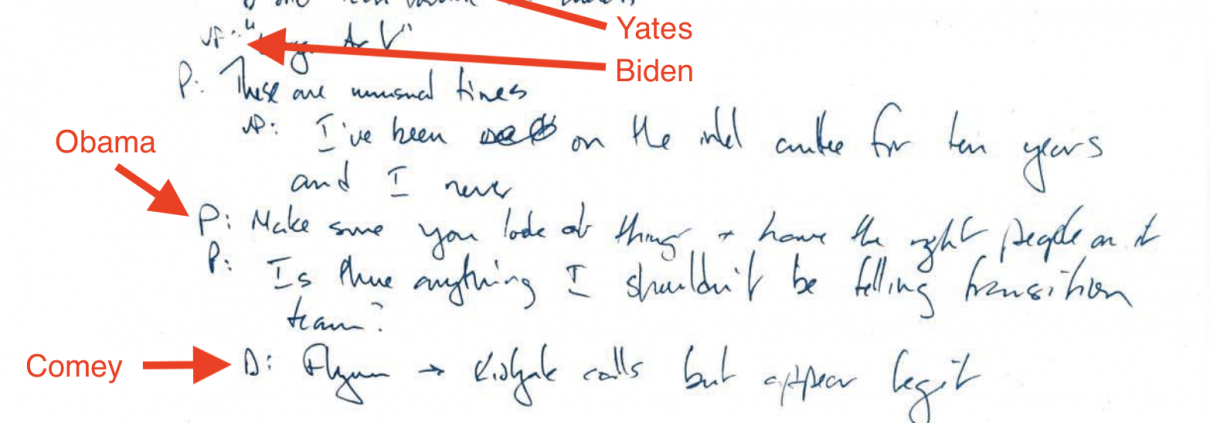 Yates
VP: "Logan Act"
Biden
P: These are unusual times
Obama
VP: I've been on the intel cmttee for ten years
and I never
P: Make sure you look at things + have the right people on it
P: Is there anything I shouldn't be telling transition
team?
Comey
D: Flynn → Kislyak calls but appear legit